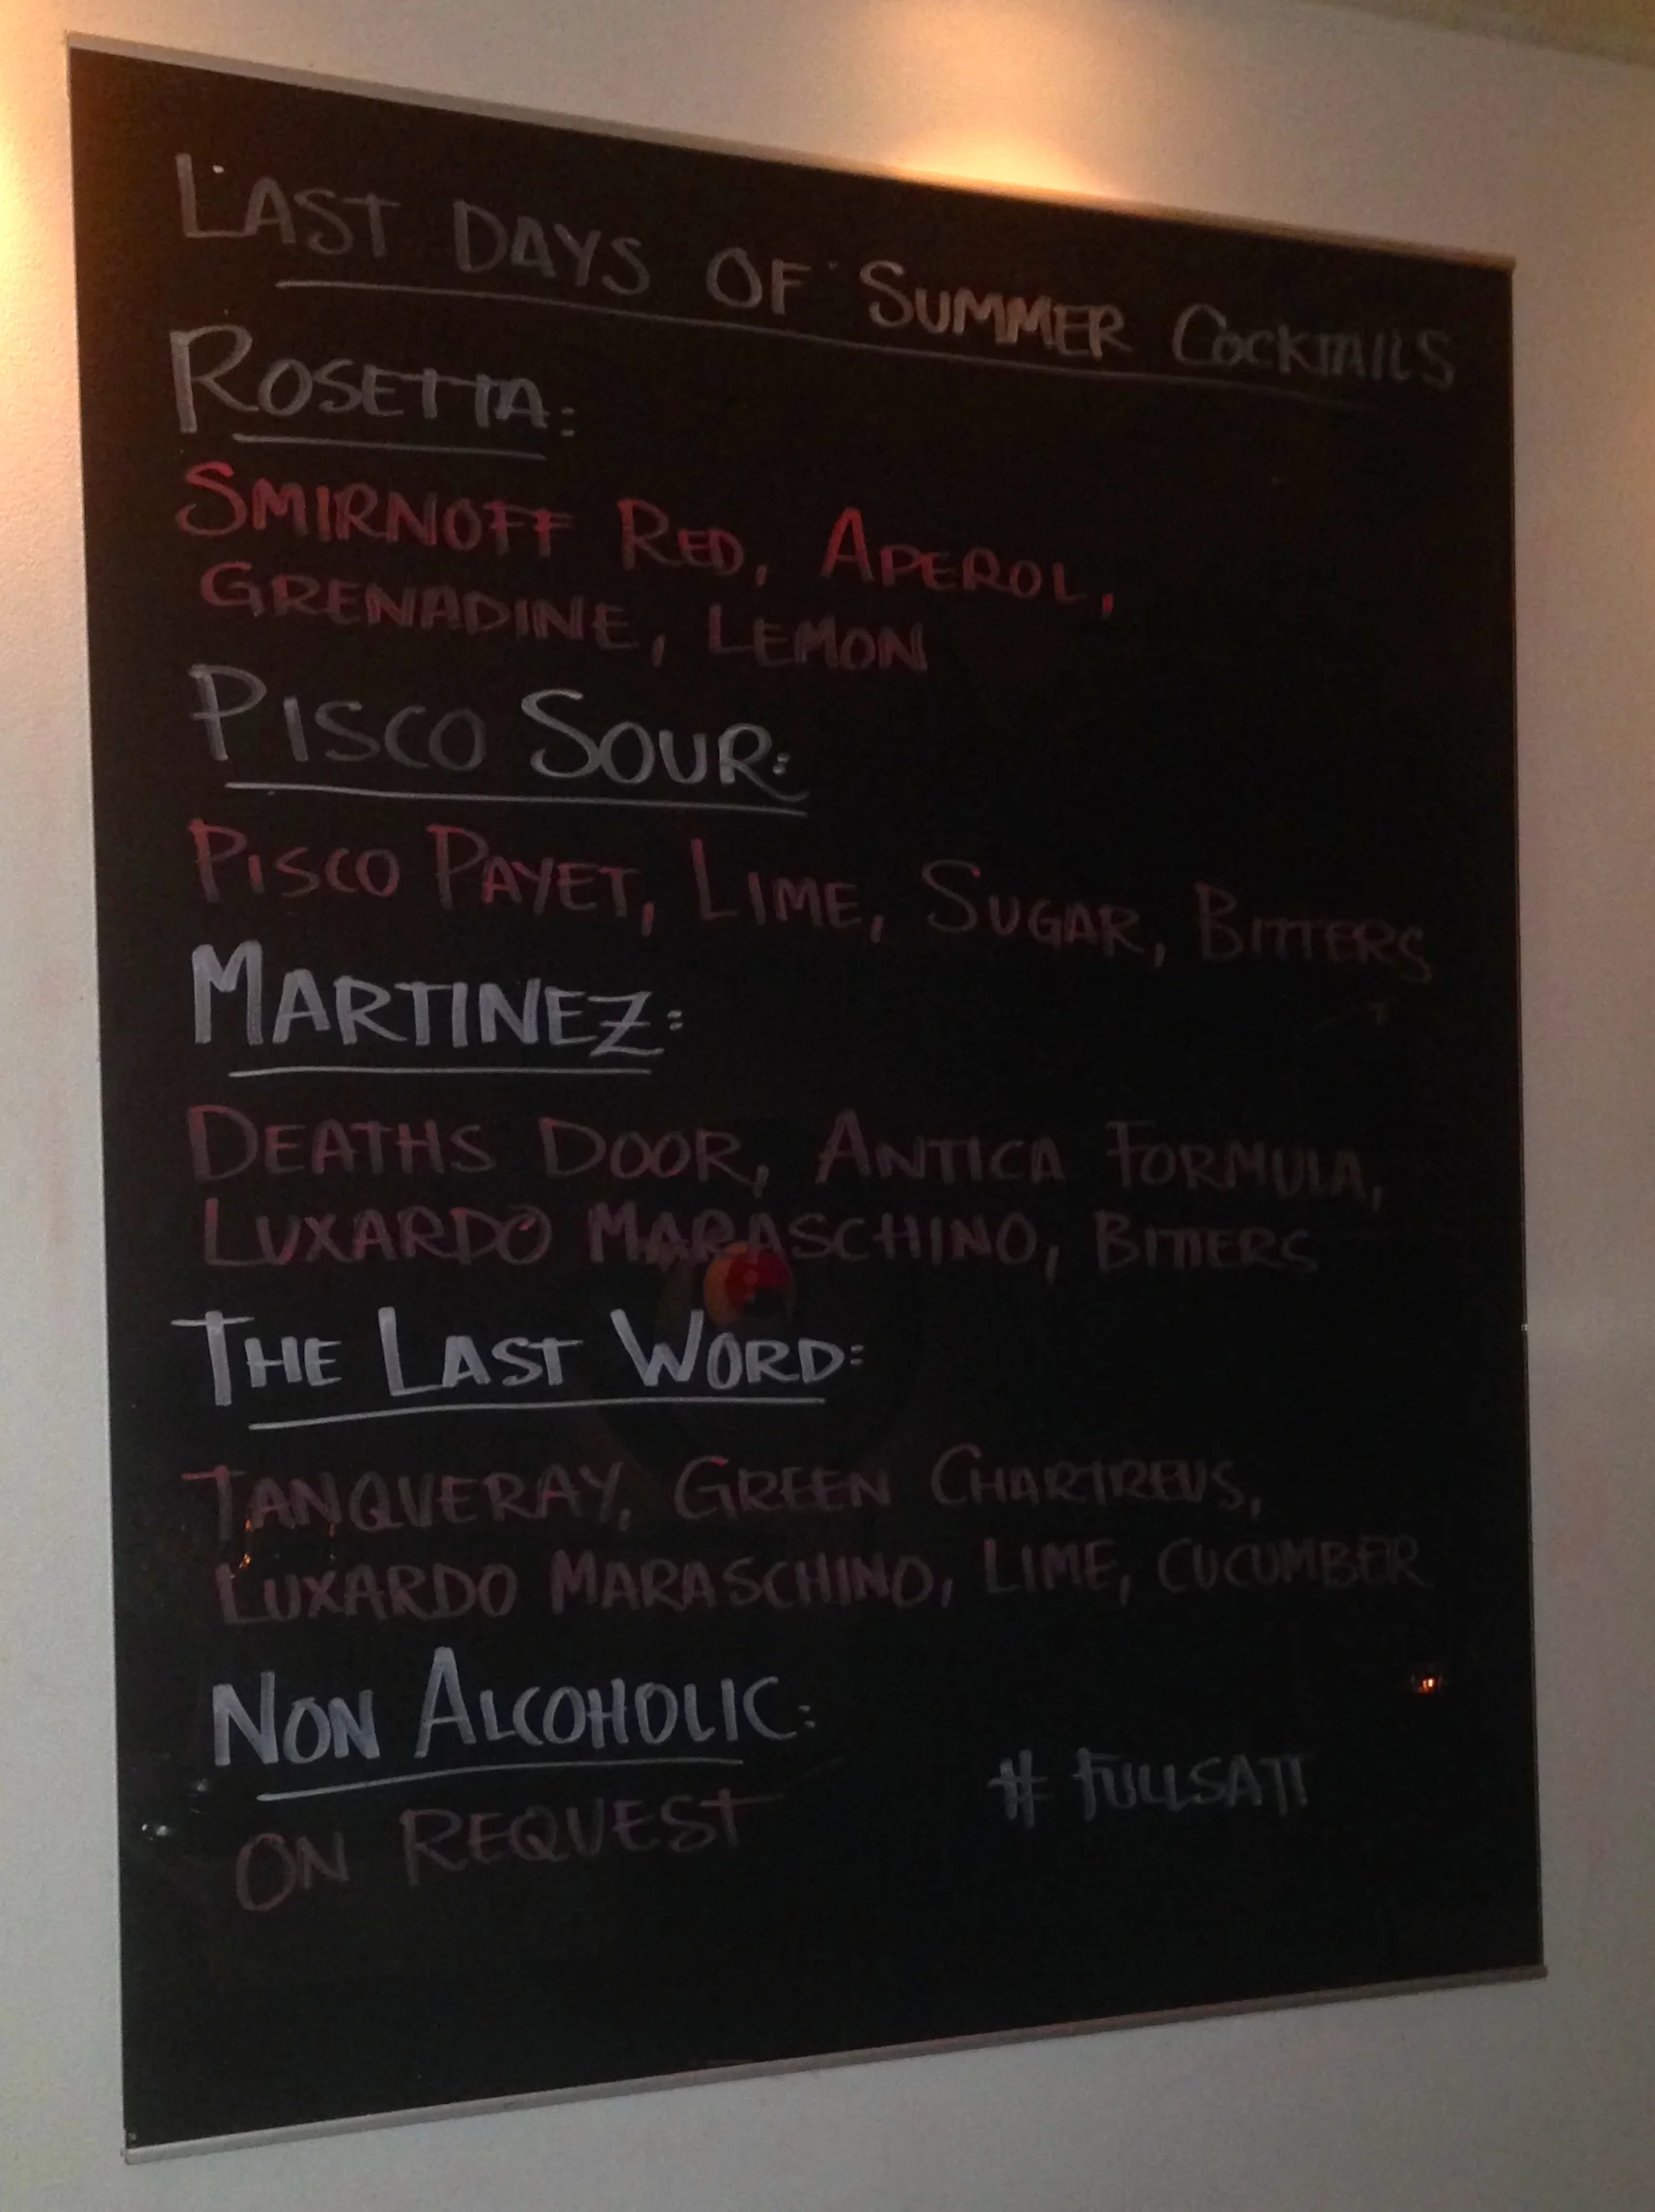 LAST DAYS OF SUMMER COCKTAILS
ROSETTA:
SMIRNOFF RED, APEROL,
GRENADINE, LEMON
PISCO SOUR:
PISCO PAYET, LIME, SUGAR, BITTERS
MARTINEZ:
DEATHS DOOR, ANTICA FORMULA,
LUXARDO MARASCHINO, BITTERS
THE LAST WORD:
TANQUERAY, GREEN CHARTREUS,
LUXARDO MARASCHINO, LIME, CUCUMBER
NON ALCOHOLIC:
ON REQUEST
# FULLSATT